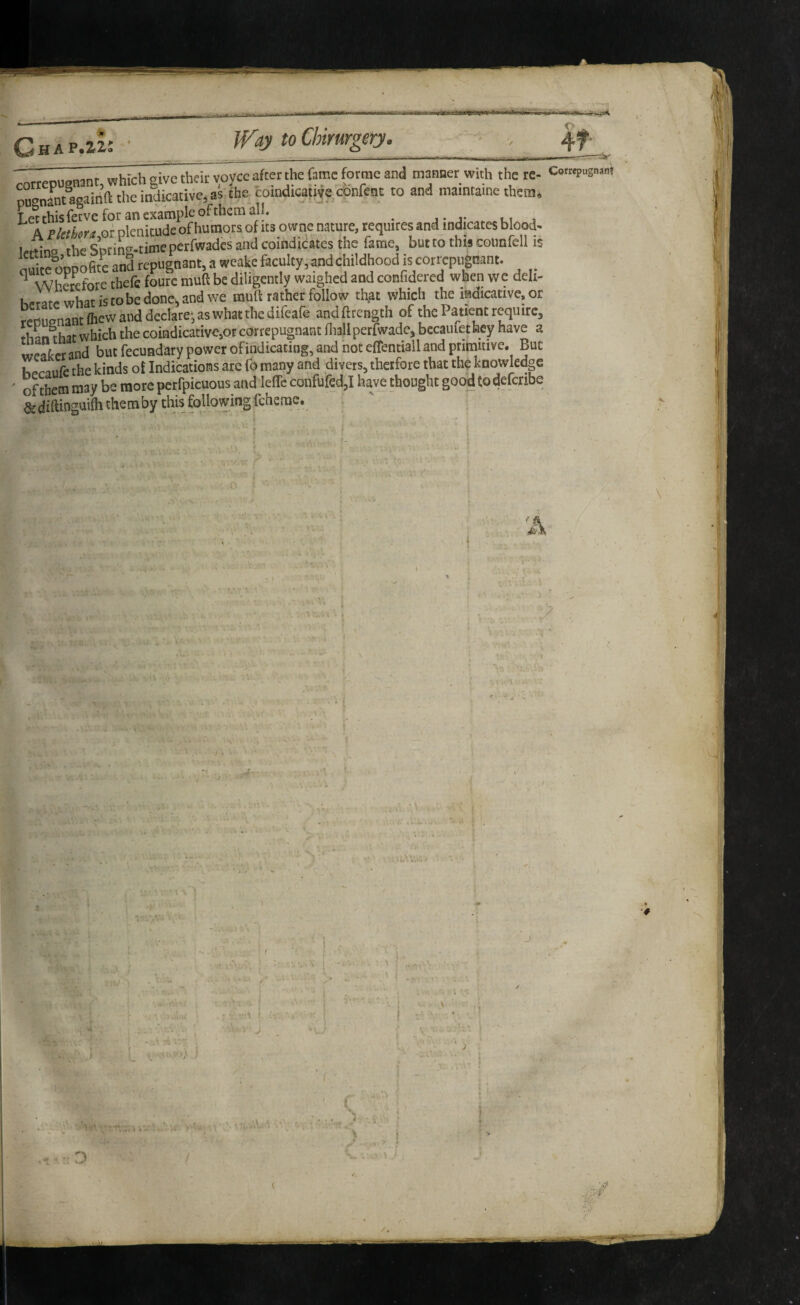 CHAP.22. Way to Chirurgery. 41
correpugnant, which give their voyce after the ſame forme and manner with the re-
Correpugnant
pugnant againſt the indicative, as the coindicative conſent to and maintaine them.
Let this ſerve for an example of them all.
A Plethora, or plenitude of humors of its owne nature, requires and indicates blood-
letting, the Spring-time perſwades and coindicates the ſame, but to this counſell is
quite oppoſite and repugnant, a weake faculty, and childhood is correpugnant.
Wherefore theſe foure muſt be diligently waighed and conſidered when we deli-
berate what is to be done, and we muſt rather follow that which the indicative, or
repugnant ſhew and declare; as what the diſeaſe and ſtrength of the Patient require,
than that which the coindicative, or correpugnant ſhall perſwade, becauſe they have a
weaker and but ſecundary power of indicating, and not eſſentiall and primitive. But
becauſe the kinds of Indications are ſo many and divers, therfore that the knowledge
of them may be more perſpicuous and leſſe confuſed, I have thought good to deſcribe
& diſtinguiſh them by this following ſcheme.
A